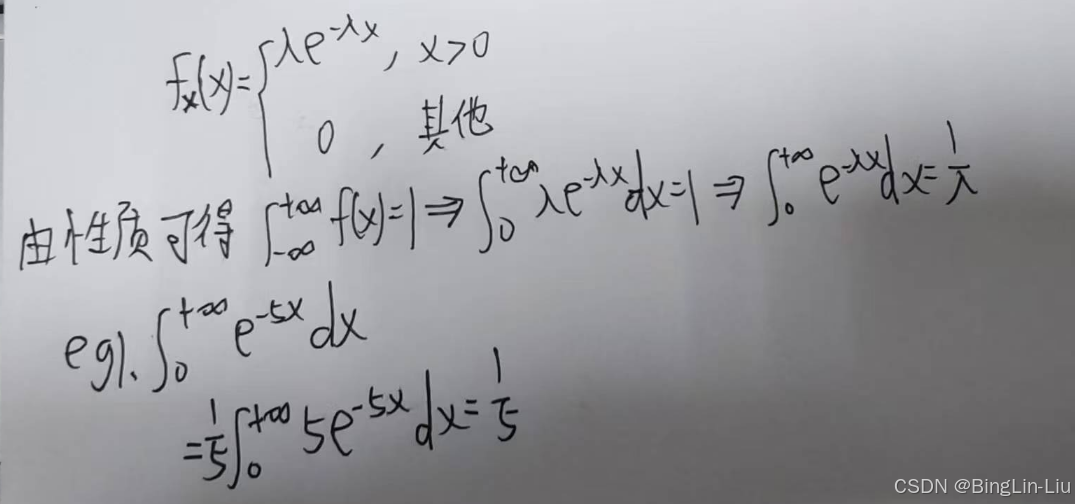 fₓ(x)={λe^{-λx}, x>0
0, 其他
由性质可得 ∫_{-∞}^{+∞} f(x)=1 ⇒ ∫_0^{+∞} λe^{-λx}dx=1 ⇒ ∫_0^{+∞} e^{-λx}dx=1/λ
eg1. ∫_0^{+∞} e^{-5x} dx
=1/5 ∫_0^{+∞} 5e^{-5x} dx=1/5
CSDN @BingLin-Liu